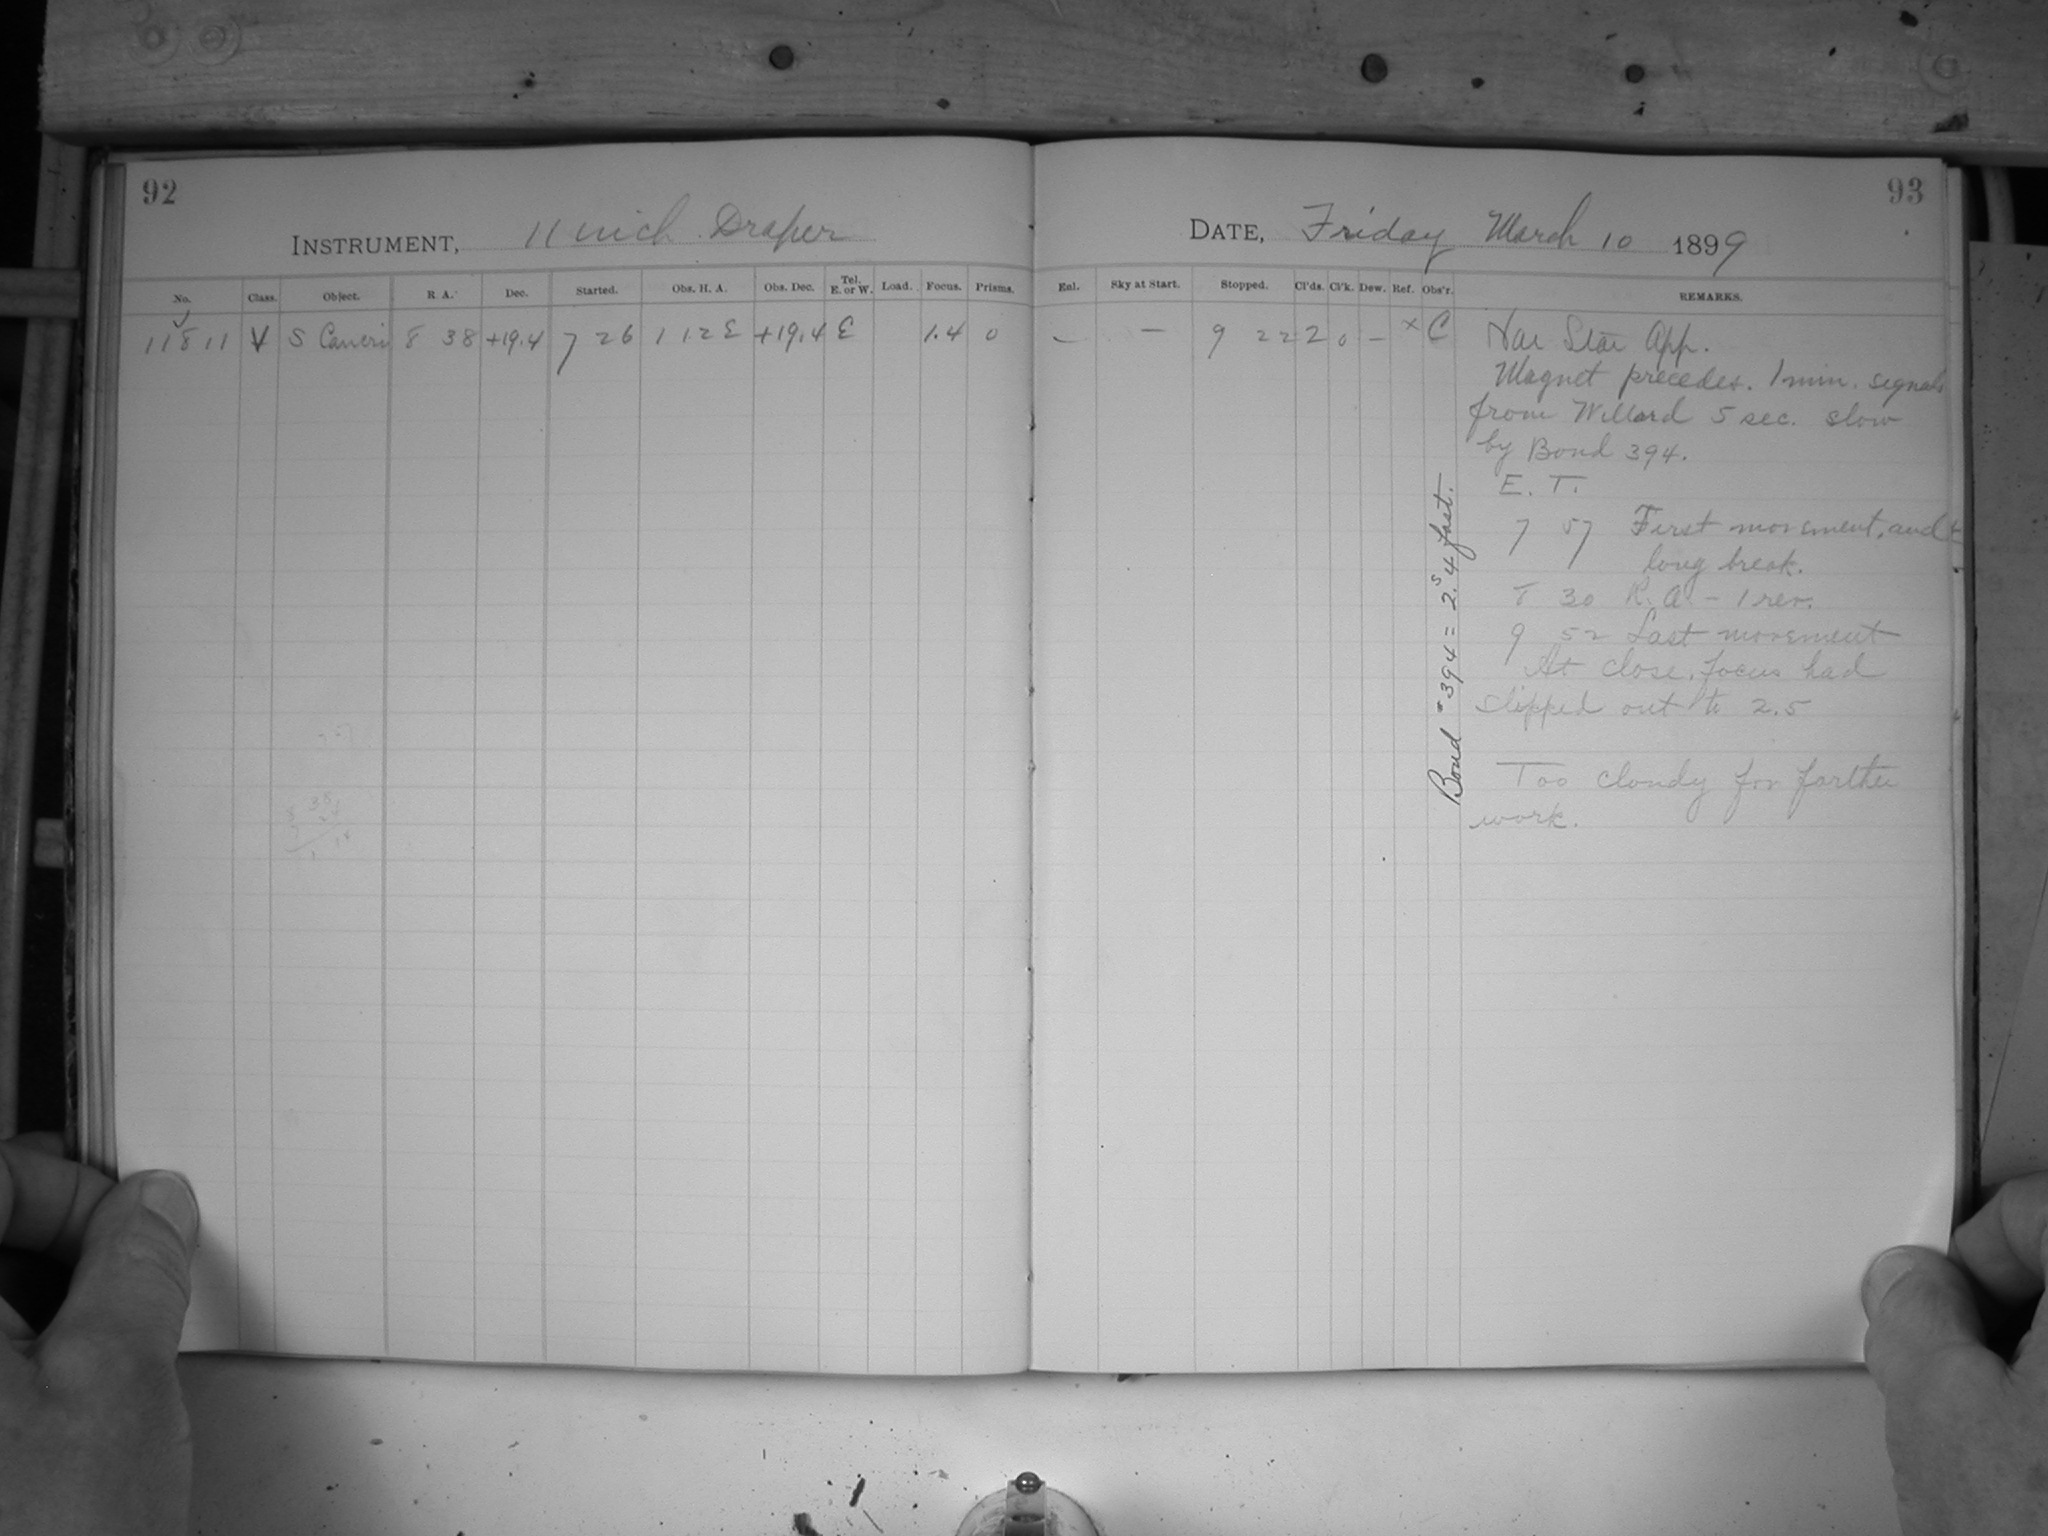 92
INSTRUMENT, 11 inch Draper
No. Class. Object. R. A. Dec. Started. Obs. H. A. Obs. Dec. Tel. E. or W. Load. Focus. Prisms.
11811 V S Cancri 8 38 +19.4 7 26 1 12 E +19.4 E 1.4 0
8 38
93
DATE, Friday March 10 1899
Enl. Sky at Start. Stopped. Cl'ds. Cl'k. Dew. Ref. Obs'r. REMARKS.
– – 9 22 2 0 – x C Var Star App.
Magnet precedes. 1 min. signals
from Willard 5 sec. slow
by Bond 394.
E. T.
7 57 First movement, and
long break.
8 30 R. A. – 1 rev.
9 52 Last movement
At close, focus had
slipped out to 2.5
Too cloudy for farther
work.
Bond #394 = 2.s4 fast.